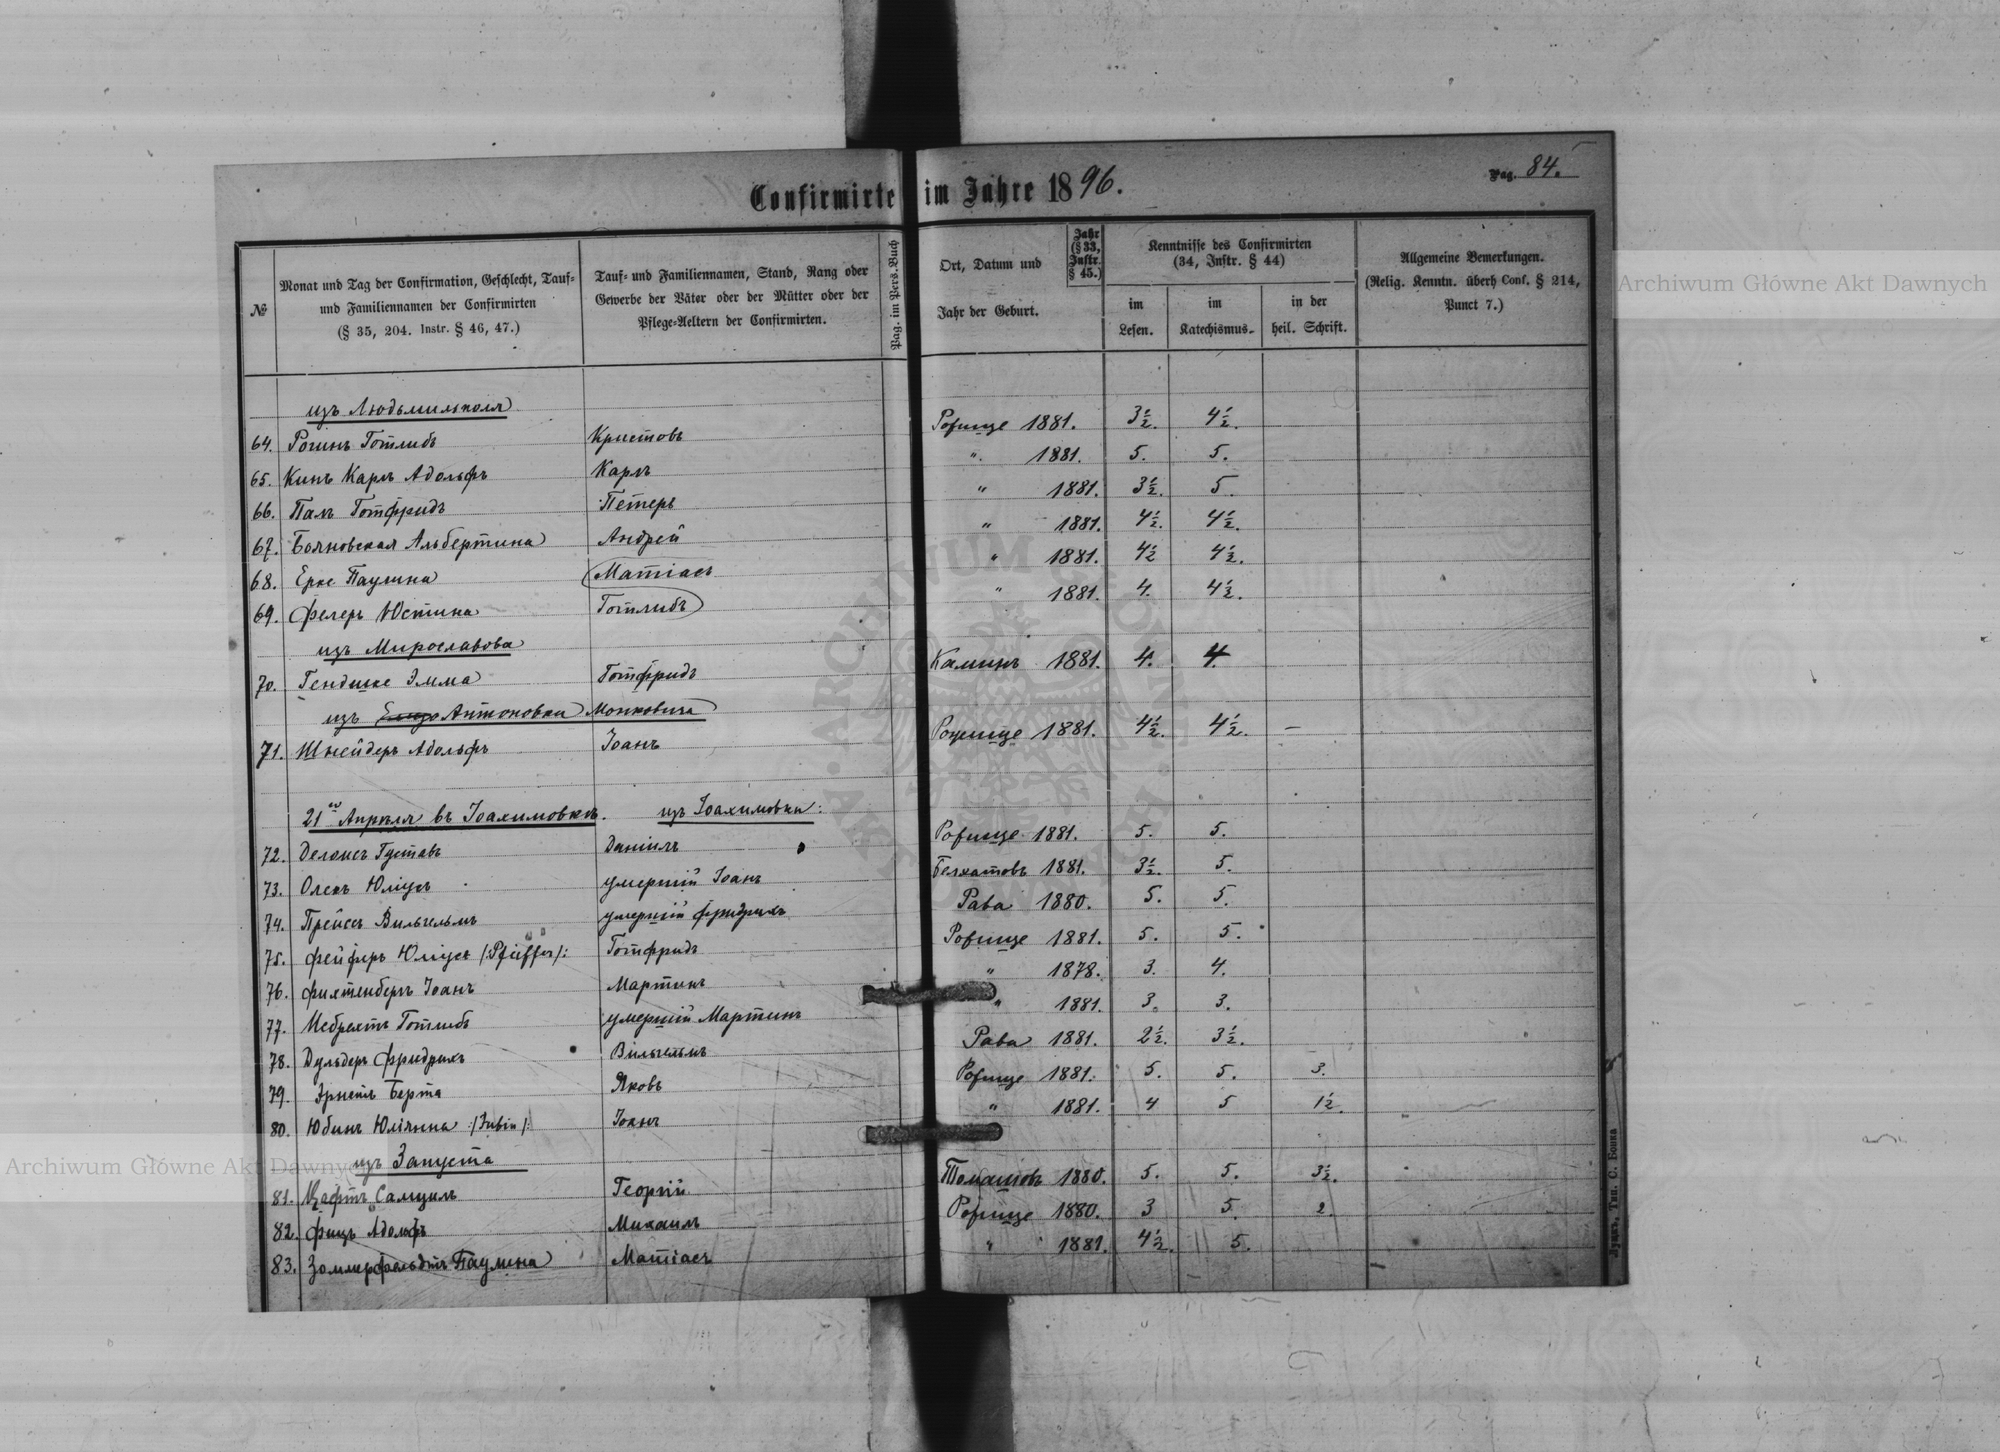 Confirmirte im Jahre 1896.
Pag. 84.
№
Monat und Tag der Confirmation, Geschlecht, Tauf- und Familiennamen der Confirmirten (§ 35, 204. Instr. § 46, 47.)
Tauf- und Familiennamen, Stand, Rang oder Gewerbe der Väter oder der Mütter oder der Pflege-Aeltern der Confirmirten.
Pag. im Pers. Buch
Ort, Datum und Jahr der Geburt.
Jahr (§ 33, Instr. § 45.)
Kenntnisse des Confirmirten (34, Instr. § 44)
im Lesen.
im Katechismus.
in der heil. Schrift.
Allgemeine Bemerkungen. (Relig. Kenntn. überh Conf. § 214, Punct 7.)
изъ Людьмильполя
64. Рогинъ Готлибъ Кристовъ Рожище 1881. 3½. 4½.
65. Кинъ Карлъ Адольфъ Карлъ " 1881. 5. 5.
66. Палъ Готфридъ Петеръ " 1881. 3½. 5.
67. Бояновская Альбертина Андрей " 1881. 4½. 4½.
68. Ерке Паулина Матіасъ " 1881. 4½ 4½.
69. Фелеръ Юстина Готлибъ " 1881. 4. 4½.
изъ Мирославова
70. Гендшке Эмма Готфридъ Каминъ 1881. 4. 4.
изъ Антоновки Монковича
71. Шнейдеръ Адольфъ Іоанъ Рожище 1881. 4½. 4½. —
21го Апрѣля въ Іоахимовкѣ. изъ Іоахимовки:
72. Густавъ Даніилъ Рожище 1881. 5. 5.
73. Олекъ Юліусъ умершій Іоанъ Белхатовъ 1881. 3½. 5.
74. Прейсъ Вильгельмъ умершій Фридрихъ Рава 1880. 5. 5.
75. Фейферъ Юліусъ /:Pfeiffer/: Готфридъ Рожище 1881. 5. 5.
76. Фихтенбергъ Іоанъ Мартинъ " 1878. 3. 4.
77. Готлибъ умершій Мартинъ " 1881. 3. 3.
78. Дульдеръ Фридрихъ Вильгельмъ Рава 1881. 2½. 3½.
79. Эрнстъ Берта Яковъ Рожище 1881. 5. 5. 3.
80. Юбинъ Юліянна :/Jubin/: Іоанъ " 1881. 4 5 1½.
изъ Запуста
81. Самуилъ Георгій Томашовъ 1880. 5. 5. 3½.
82. Фицъ Адольфъ Михаилъ Рожище 1880. 3 5. 2.
83. Зоммерфельдтъ Паулина Матіасъ " 1881. 4½. 5.
Луцкъ, Тип. С. Бошка
Archiwum Główne Akt Dawnych
Archiwum Główne Akt Dawnych